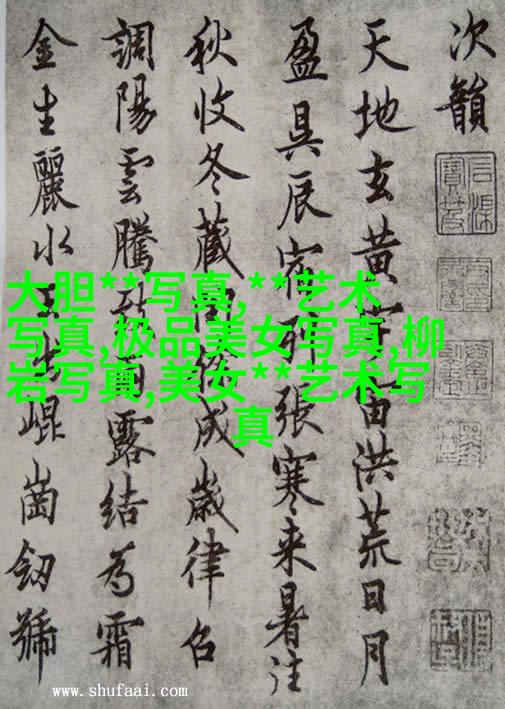 次韻
天地玄黄宇宙洪荒日月
盈昃辰宿列張寒来暑往
秋收冬藏閏餘成歲律召
調陽雲騰致雨露結為霜
金生麗水玉出崐崗劒號
大胆**写真,**艺术
写真,极品美女写真,柳
岩写真,美女**艺术写
真
www.shufaai.com